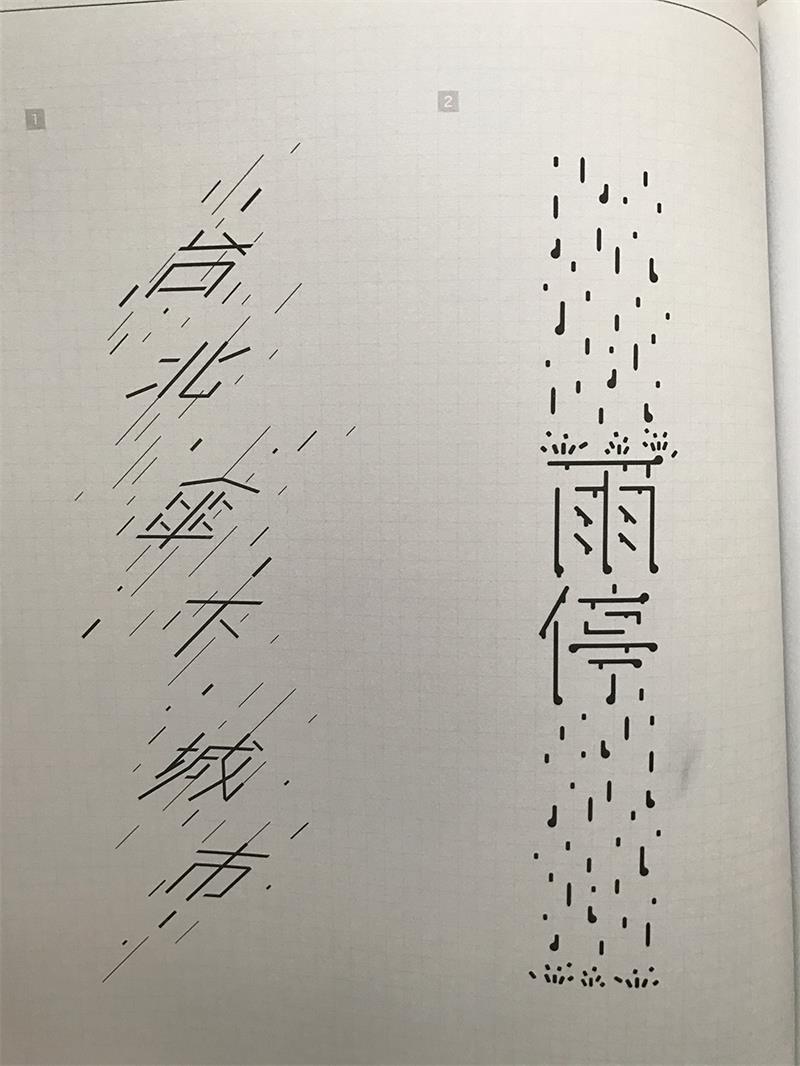 1
台北傘下城市
2
雨停